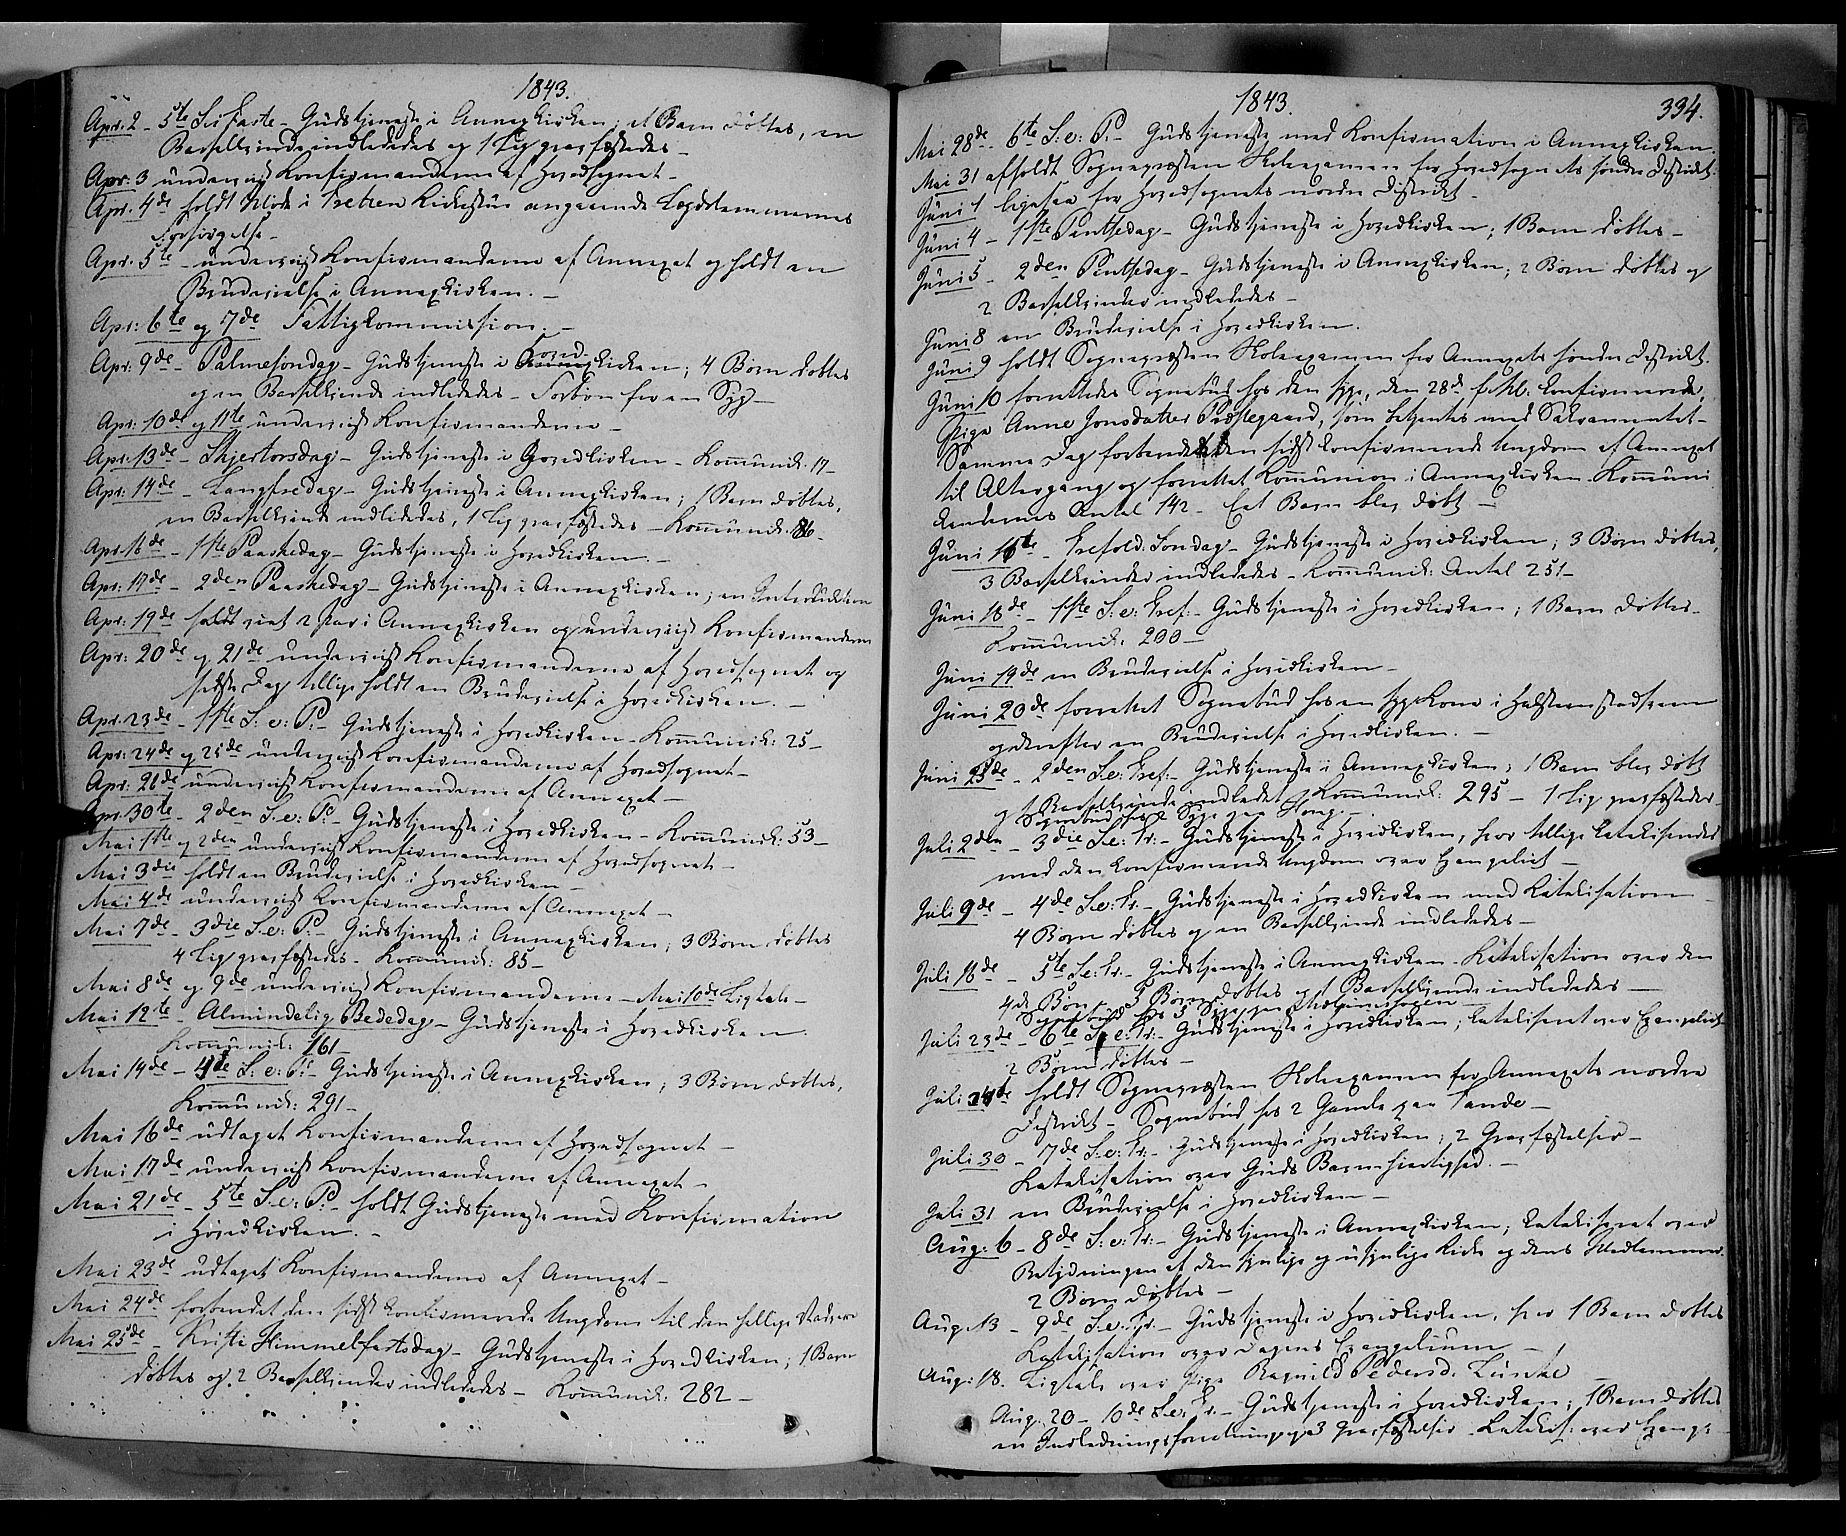 1843.
Apr. 2 - 5te S. i Faste - Gudstjeneste i Annexkirken; et Barn døbtes, en
Barselkvinde indlededes og 1 Lig græsfæstedes -
Apr: 3 underviist Konfirmanderne af Hovedsognet -
Apr. 4de holdt Møde i Tretten Kirkestue angaaende Lægdslemmernes
Forsørgelse -
Apr. 5te - underviist Konfirmanderne af Annexet og holdt en
Brudevielse i Annexkirken. -
Apr: 6te og 7de Fattigkommission. -
Apr: 9de - Palmesøndag - Gudstjeneste i Hovedkirken; 4 Børn døbtes
og en Barselkvinde indlededes - Forbøn for en Syg -
Apr: 10de og 11te underviist Konfirmanderne -
Apr: 13de - Skjertorsdag - Gudstjeneste i Hovedkirken - Kommunik. 17 -
Apr: 14de - Langfredag - Gudstjeneste i Annexkirken; 1 Barn døbtes,
en Barselkvinde indlededes, 1 Lig græsfæstedes - Kommunik. 86 -
Apr. 16de - 1ste Paaskedag - Gudstjeneste i Hovedkirken. -
Apr: 17de - 2den Paaskedag - Gudstjeneste i Annexkirken; en Introduktion
Apr: 19de holdt viet 2 Par i Annexkirken og underviist Konfirmanderne
Apr: 20de og 21de underviist Konfirmanderne af Hovedsognet og
sidste Dag tillige holdt en Brudevielse i Hovedkirken. -
Apr. 23de - 1ste S. e: P. - Gudstjeneste i Hovedkirken - Kommunik: 25 -
Apr: 24de og 25de underviist Konfirmanderne af Hovedsognet -
Apr: 26de underviist Konfirmanderne af Annexet -
Apr. 30te - 2den S. e: P. - Gudstjeneste i Hovedkirken - Kommunik: 53 -
Mai 1ste og 2den underviist Konfirmanderne af Hovedsognet -
Mai 3die holdt en Brudevielse i Hovedkirken -
Mai 4de underviist Konfirmanderne af Annexet -
Mai 7de - 3die S. e: P. - Gudstjeneste i Annexkirken; 3 Børn døbtes
4 Lig græsfæstedes - Kommunik: 85 -
Mai 8de og 9de underviist Konfirmanderne - Mai 10de Ligtale -
Mai 12te - Almindelig Bededag - Gudstjeneste i Hovedkirken
Kommunik: 161 -
Mai 14de - 4de S. e: P. - Gudstjeneste i Annexkirken; 3 Børn døbtes,
Kommunik: 291 -
Mai 16de udtaget Konfirmanderne af Hovedsognet -
Mai 17de underviist Konfirmanderne af Annexet -
Mai 21de - 5te S. e: P. - holdt Gudstjeneste med Konfirmation
i Hovedkirken. -
Mai 23de udtaget Konfirmanderne af Annexet -
Mai 24de forberedet den sidst konfirmerede Ungdom til den hellige Nadvere
Mai 25de - Kristi Himmelfartsdag - Gudstjeneste i Hovedkirken; 1 Barn
døbtes og 2 Barselkvinder indlededes - Kommunik: 282 -
1843.
394.
Mai 28de - 6te S. e: P. - Gudstjeneste med Konfirmation i Annexkirken.
Mai 31 afholdt Sognepræsten Skoleexamen for Hovedsognets søndre Distrikt.
Juni 1 ligesaa for Hovedsognets nordre Distrikt -
Juni 4 - 1ste Pintsedag - Gudstjeneste i Hovedkirken; 1 Barn døbtes -
Juni 5 - 2den Pintsedag - Gudstjeneste i Annexkirken; 2 Børn døbtes og
2 Barselkvinder indlededes -
Juni 8 en Brudevielse i Hovedkirken.
Juni 9 holdt Sognepræsten Skoleexamen for Annexets søndre Distrikt.
Juni 10 forrettedes Sognebud hos den syge, den 28de f. M. konfirmerede,
Pige Anne Jonsdatter Præstegaard, som betjentes med Sakramentet -
Samme Dag forberedt den sidst konfirmerede Ungdom af Annexet
til Altergang og forrettet Kommunion i Annexkirken. Kommuni
kanternes Antal 142 - Eet Barn blev døbt -
Juni 11te - Trefold. Søndag - Gudstjeneste i Hovedkirken; 3 Børn døbtes,
3 Barselkvinder indlededes - Kommunik: Antal 251 -
Juni 18de - 1ste S. e: Tref. - Gudstjeneste i Hovedkirken; 1 Barn døbtes -
Kommunik: 200 -
Juni 19de en Brudevielse i Hovedkirken -
Juni 20de forrettet Sognebud hos en syg Kone i
og derefter en Brudevielse i Hovedkirken. -
Juni 25de - 2den S. e: Tref. - Gudstjeneste i Annexkirken; 1 Barn blev døbt
og 1 Barselkvinde indledet - Kommunik: 295 - 1 Lig græsfæstedes -
Sognebud hos 2 Syge paa
Juli 2den - 3die S. e: Tr. - Gudstjeneste i Hovedkirken, hvor tillige katekiseredes
med den konfirmerede Ungdom over Evangeliet -
Juli 9de - 4de S. e: Tr. - Gudstjeneste i Hovedkirken med Katekisation
4 Børn døbtes og en Barselkvinde indlededes -
Juli 16de - 5te S. e: Tr. - Gudstjeneste i Annexkirken - Katekisation over den
4de Bøn - 3 Børn døbtes og 1 Barselkvinde indlededes -
Sognebud hos 3 Syge paa
Juli 23de - 6te S. e: Tr. - Gudstjeneste i Hovedkirken; katekiseret over Evangeliet
2 Børn døbtes -
Juli 24de holdt Sognepræsten Skoleexamen for Annexets nordre
Distrikt - Sognebud hos 2 Gamle paa Tande -
Juli 30 - 7de S. e: Tr. - Gudstjeneste i Hovedkirken; 2 Græsfæstelser -
Katekisation over Guds Barmhjertighed. -
Juli 31 en Brudevielse i Hovedkirken -
Aug: 6 - 8de S. e: Tr. - Gudstjeneste i Annexkirken; katekiseret over
Betydningen af den synlige og usynlige Kirke og dens Medlemmer.
2 Børn døbtes -
Aug. 13 - 9de S. e: Tr. - Gudstjeneste i Hovedkirken, hvor 1 Barn døbtes
Katekisation over Dagens Evangelium -
Aug: 18. Ligtale over Pige Ragnild Pedersd.
Aug. 20 - 10de S. e: Tr. - Gudstjeneste i Hovedkirken; 1 Barn døbtes
en Indledningsforretning og 3 Græsfæstelser - Katekis: over Evang: